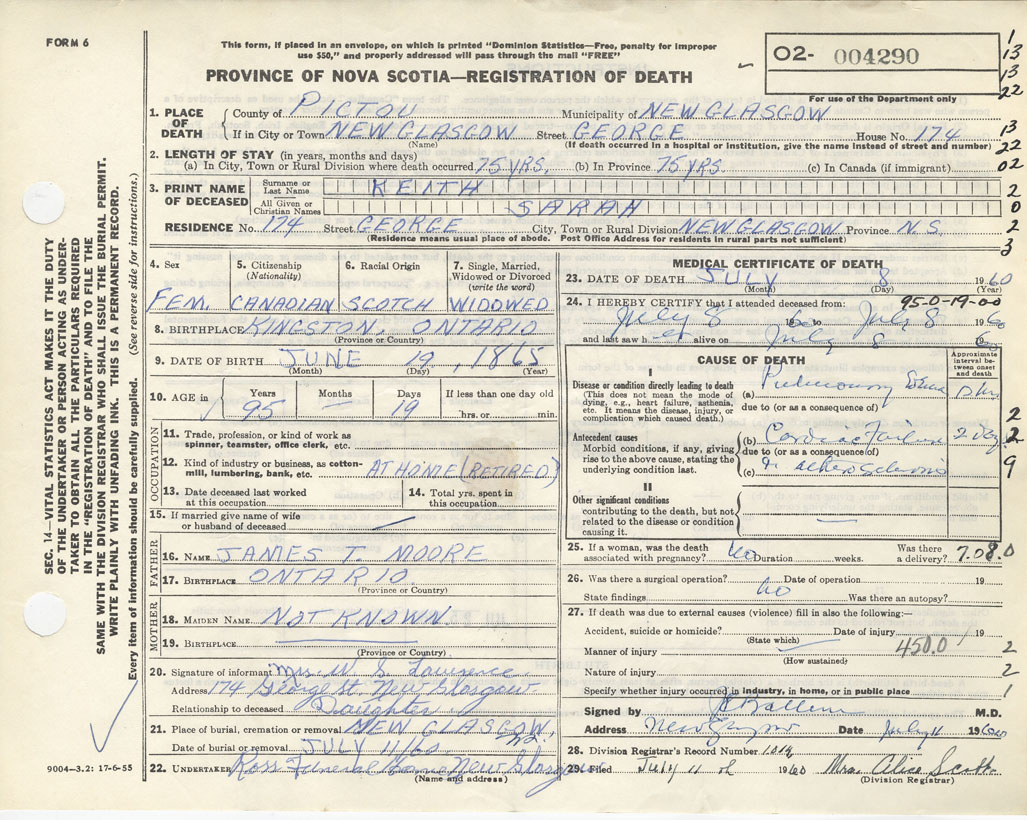 FORM 6
This form, if placed in an envelope, on which is printed "Dominion Statistics—Free, penalty for improper
use $50," and properly addressed will pass through the mail "FREE"
PROVINCE OF NOVA SCOTIA—REGISTRATION OF DEATH
O2- 004290
For use of the Department only
1
13
13
22
1. PLACE OF DEATH
County of PICTOU Municipality of NEW GLASGOW
If in City or Town NEW GLASGOW Street GEORGE House No. 174 13
(Name) (If death occurred in a hospital or institution, give the name instead of street and number) 22
2. LENGTH OF STAY (in years, months and days)
(a) In City, Town or Rural Division where death occurred 75 YRS. (b) In Province 75 YRS. (c) In Canada (if immigrant) 02
3. PRINT NAME OF DECEASED
Surname or Last Name KEITH 2
All Given or Christian Names SARAH 0
RESIDENCE No. 174 Street GEORGE City, Town or Rural Division NEW GLASGOW Province N.S. 2
(Residence means usual place of abode. Post Office Address for residents in rural parts not sufficient) 3
4. Sex 5. Citizenship (Nationality) 6. Racial Origin 7. Single, Married, Widowed or Divorced (write the word)
FEM. CANADIAN SCOTCH WIDOWED
8. BIRTHPLACE KINGSTON, ONTARIO
(Province or Country)
9. DATE OF BIRTH JUNE 19, 1865
(Month) (Day) (Year)
10. AGE in Years Months Days If less than one day old
95 — 19 hrs. or min.
OCCUPATION
11. Trade, profession, or kind of work as
spinner, teamster, office clerk, etc.
12. Kind of industry or business, as cotton-
mill, lumbering, bank, etc. AT HOME (RETIRED)
13. Date deceased last worked
at this occupation
14. Total yrs. spent in
this occupation
15. If married give name of wife
or husband of deceased —
FATHER
16. NAME JAMES T. MOORE
17. BIRTHPLACE ONTARIO
(Province or Country)
MOTHER
18. MAIDEN NAME NOT KNOWN
19. BIRTHPLACE
(Province or Country)
20. Signature of informant Mrs. W. S. Lawrence
Address 174 George St. New Glasgow
Relationship to deceased Daughter
21. Place of burial, cremation or removal NEW GLASGOW,
Date of burial or removal JULY 11/60
22. UNDERTAKER Ross Funeral Home New Glasgow
(Name and address)
MEDICAL CERTIFICATE OF DEATH
23. DATE OF DEATH JULY 8 1960
(Month) (Day) (Year)
24. I HEREBY CERTIFY that I attended deceased from: 95-0-19-00
July 8 1960 to July 8 1960
and last saw her alive on July 8 60
CAUSE OF DEATH
Approximate interval between onset and death
I
Disease or condition directly leading to death
(This does not mean the mode of
dying, e.g., heart failure, asthenia,
etc. It means the disease, injury, or
complication which caused death.)
(a) Pulmonary Edema
due to (or as a consequence of)
Antecedent causes
Morbid conditions, if any, giving
rise to the above cause, stating the
underlying condition last.
(b) Cardiac Failure 2 days
due to (or as a consequence of)
(c)
2
2
9
II
Other significant conditions
contributing to the death, but not
related to the disease or condition
causing it.
—
25. If a woman, was the death
associated with pregnancy? No Duration weeks. Was there
a delivery? 7.08.0
26. Was there a surgical operation? No Date of operation 19
State findings Was there an autopsy?
27. If death was due to external causes (violence) fill in also the following:—
Accident, suicide or homicide? Date of injury 19
(State which)
Manner of injury 450.0 2
(How sustained)
Nature of injury 2
Specify whether injury occurred in industry, in home, or in public place 1
Signed by M.D.
Address New Glasgow Date July 11 1960
28. Division Registrar's Record Number 1014
29. Filed July 11 th 1960 Mrs. Alice Scott
(Division Registrar)
SEC. 14—VITAL STATISTICS ACT MAKES IT THE DUTY
OF THE UNDERTAKER OR PERSON ACTING AS UNDER-
TAKER TO OBTAIN ALL THE PARTICULARS REQUIRED
IN THE "REGISTRATION OF DEATH" AND TO FILE THE
SAME WITH THE DIVISION REGISTRAR WHO SHALL ISSUE THE BURIAL PERMIT.
WRITE PLAINLY WITH UNFADING INK. THIS IS A PERMANENT RECORD.
Every item of information should be carefully supplied. (See reverse side for instructions.)
9004—3.2: 17-6-55